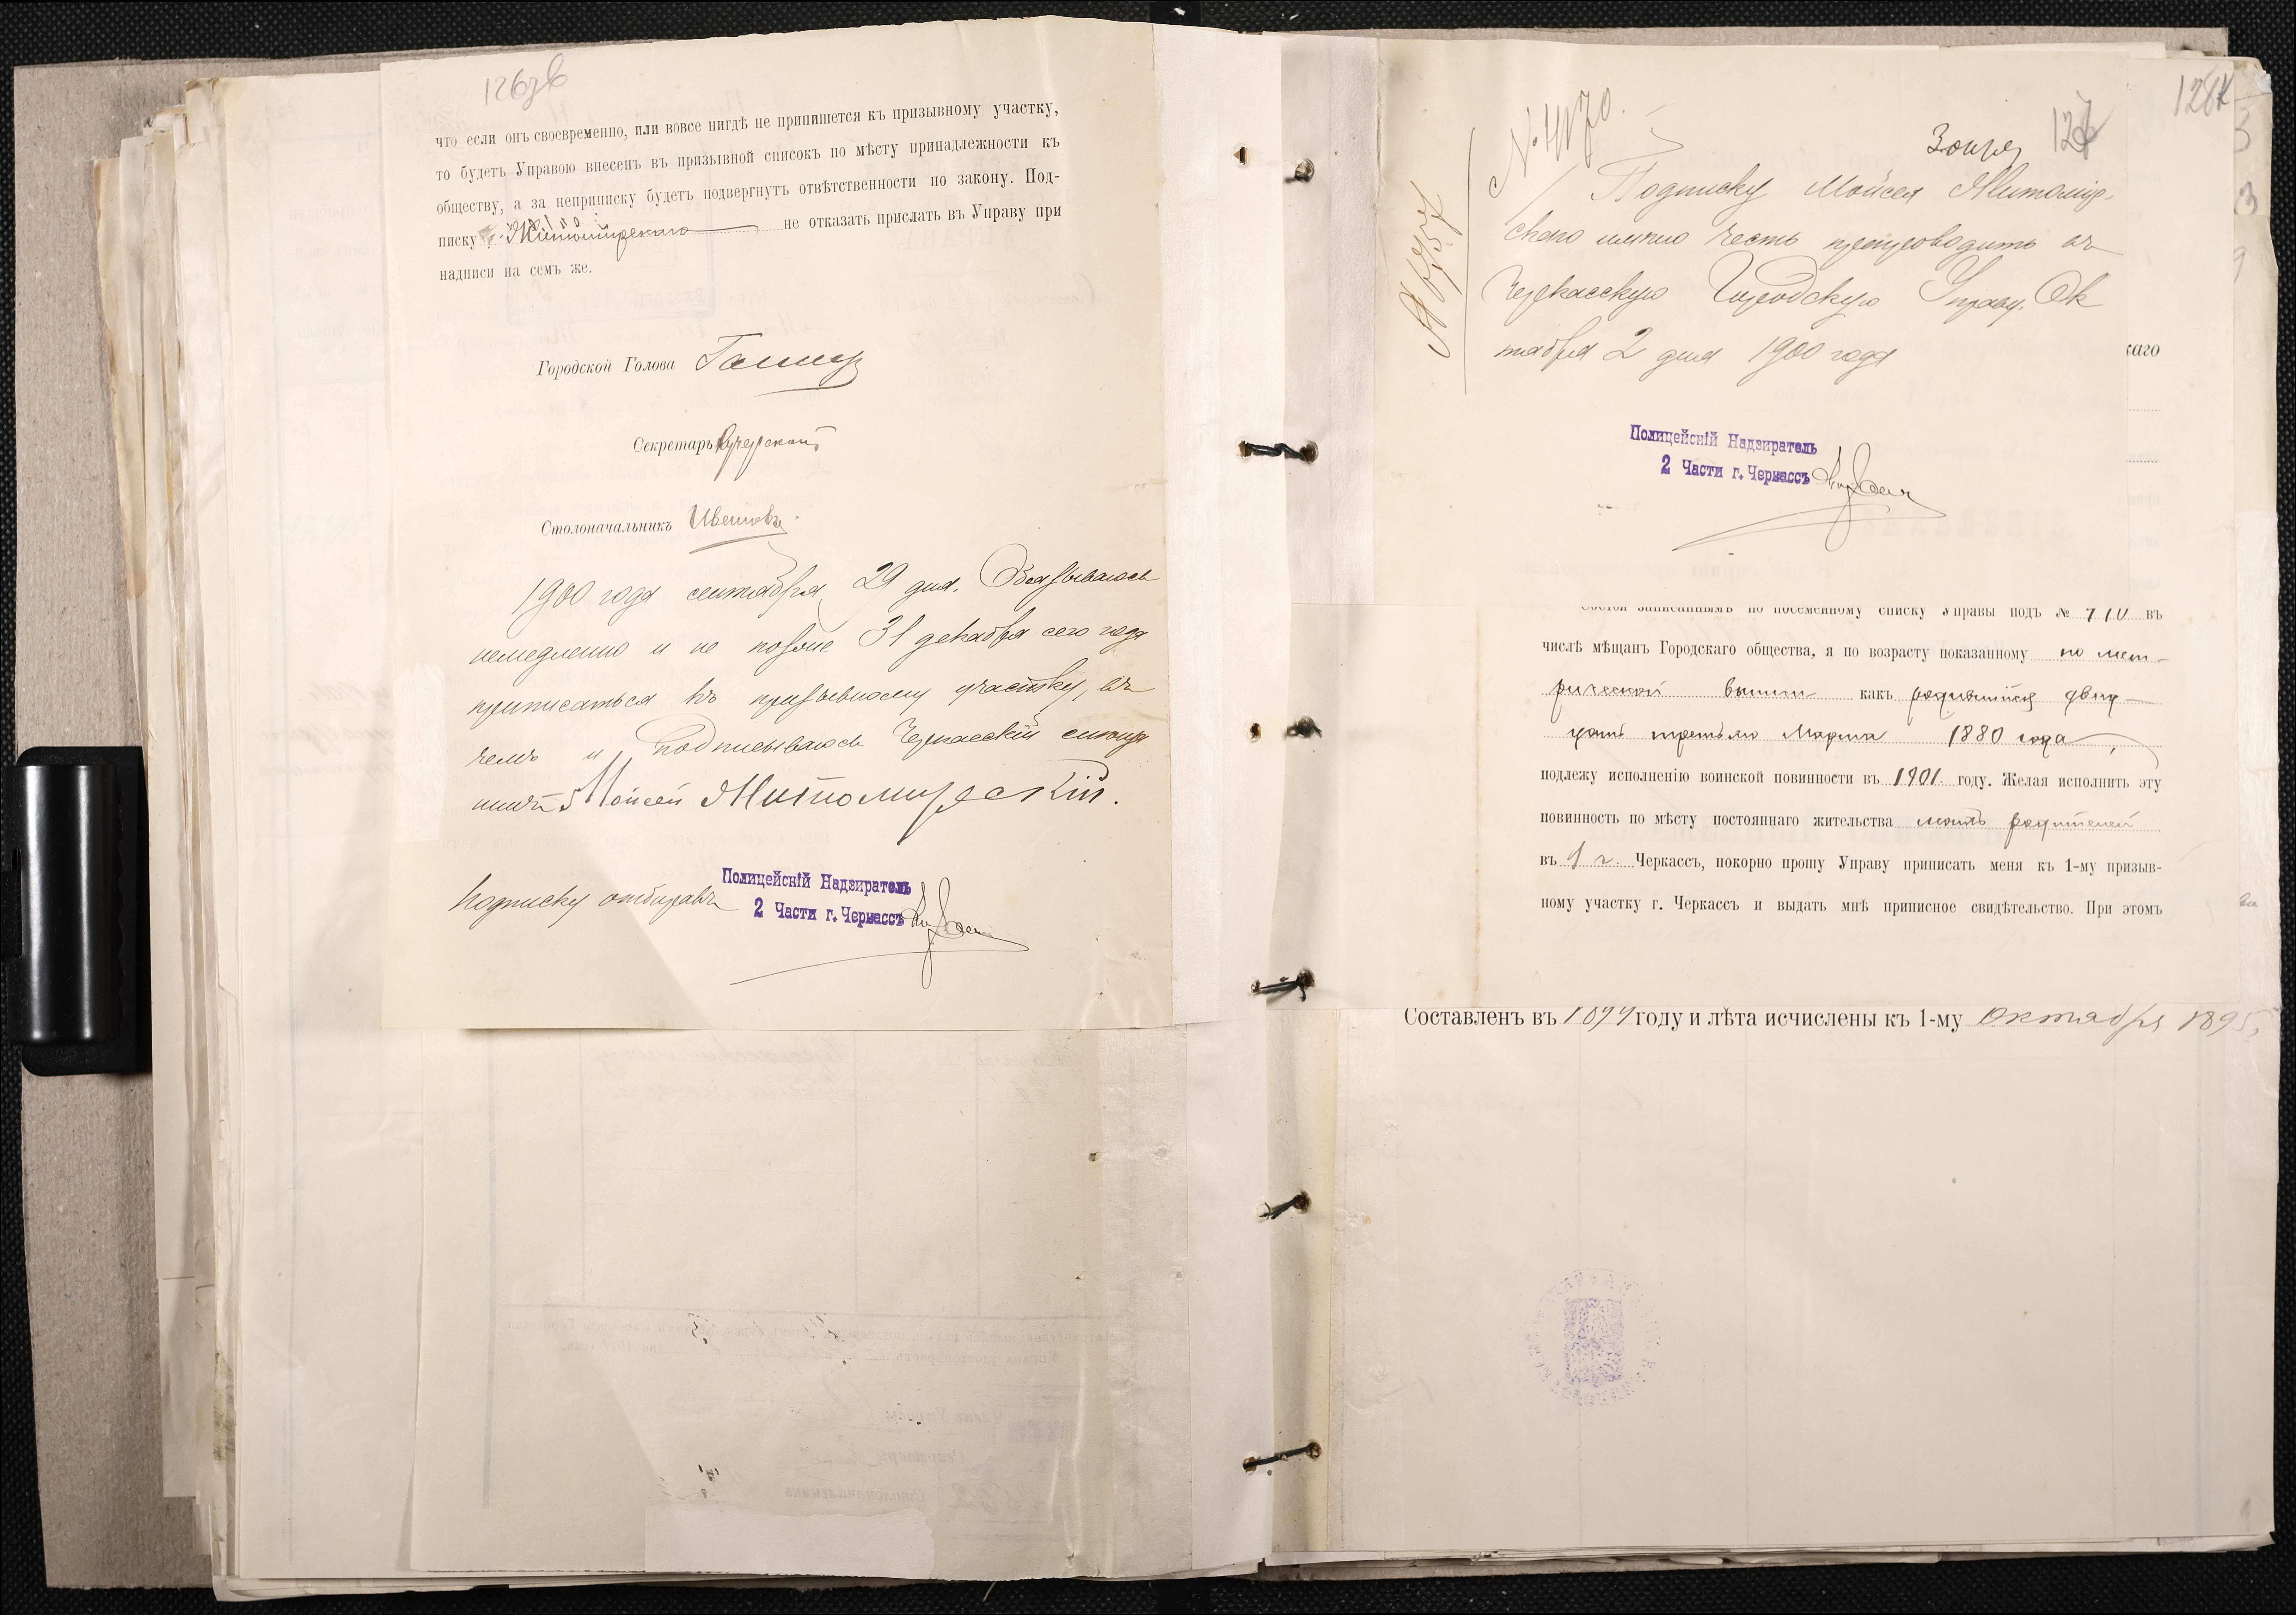 126об
что если онъ своевременно, или вовсе нигдѣ не припишется къ призывному участку,
то будетъ Управою внесенъ въ призывной списокъ по мѣсту принадлежности къ
обществу, а за неприписку будетъ подвергнутъ отвѣтственности по закону. Под-
писку Житомирскаго не отказать прислать въ Управу при
надписи на семъ же.
Городской Голова
Секретарь
Столоначальникъ
1900 года сентября 29 дня. Обязываюсь
немедленно и не позже 31 декабря сего года
приписаться къ призывному участку, въ
чемъ и подписываюсь Черкасскій
Мойсей Житомирскій.
Подписку отбиралъ
Полицейскій Надзиратель
2 Части г. Черкассъ
№ 4170.
3 октя
127
128
Подписку Мойсея Житомир-
скаго имѣю честь препроводить въ
Черкасскую Городскую Управу. Ок
тября 2 дня 1900 года
каго
Полицейскій Надзиратель
2 Части г. Черкассъ
Состоя записаннымъ по посемейному списку Управы подъ № 710 въ
числѣ мѣщанъ Городскаго общества, я по возрасту показанному по мет-
рической выписи какъ родившійся двад-
цать третьяго Марта 1880 года,
подлежу исполненію воинской повинности въ 1901 году. Желая исполнить эту
повинность по мѣсту постояннаго жительства моихъ родителей
въ г. Черкассъ, покорно прошу Управу приписать меня къ 1-му призыв-
ному участку г. Черкассъ и выдать мнѣ приписное свидѣтельство. При этомъ
Составленъ въ 1894 году и лѣта исчислены къ 1-му Октября 1895